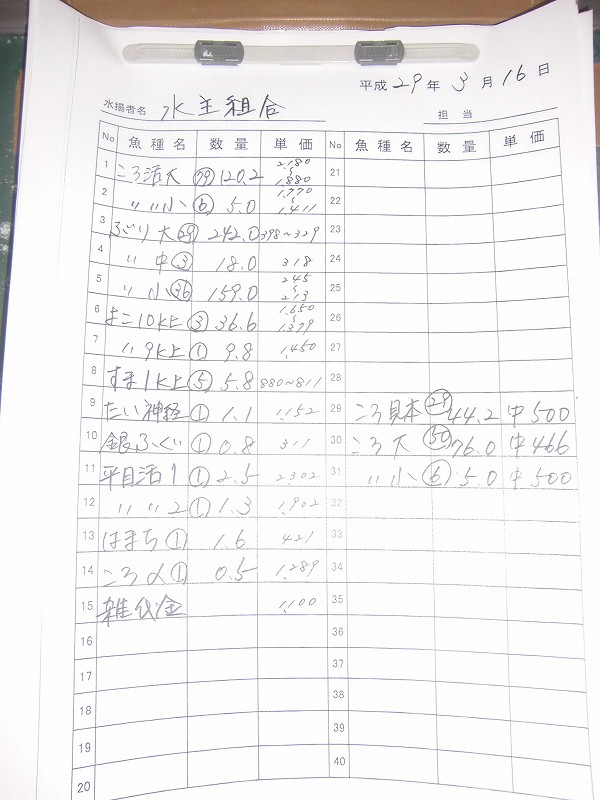 平成 29 年 3 月 16 日
水揚者名 水主組合
担当
No 魚種名 数量 単価 No 魚種名 数量 単価
1 ころ活大 79 120.2 2,180 ~ 1,880 21
2 〃〃小 6 5.0 1,770 ~ 1,411 22
3 ぶり大 29 242.0 398~329 23
4 〃中 3 18.0 318 24
5 〃小 36 159.0 245 ~ 213 25
6 よこ10k上 3 36.6 1,650 ~ 1,379 26
7 〃9k上 1 9.8 1,450 27
8 すま1k上 5 5.8 880~811 28
9 たい神経 1 1.1 1,152 29 ころ見本 29 44.2 中500
10 銀ふぐ 1 0.8 311 30 ころ大 50 76.0 中466
11 平目活1 1 2.5 2,302 31 〃小 6 5.0 中500
12 〃〃2 1 1.3 1,902 32
13 はまち 1 1.6 421 33
14 ころ〆 1 0.5 1,289 34
15 雑代金 1,100 35
16 36
17 37
18 38
19 39
20 40